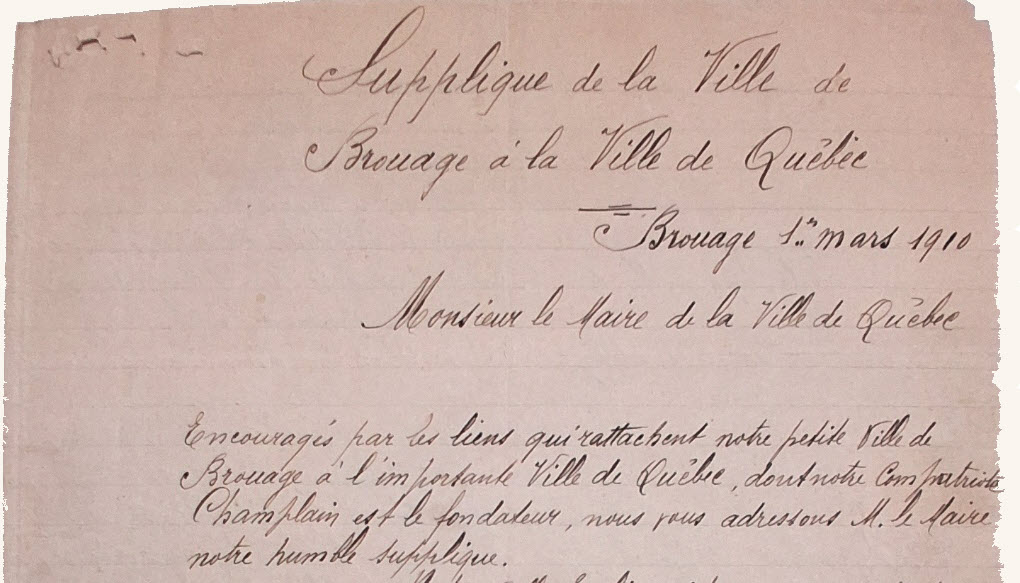 Supplique de la Ville de
Brouage à la Ville de Québec
Brouage 1er mars 1910
Monsieur le Maire de la Ville de Québec
Encouragés par les liens qui rattachent notre petite Ville de
Brouage à l'importante Ville de Québec, dont notre compatriote
Champlain est le fondateur, nous vous adressons M. le Maire
notre humble supplique.